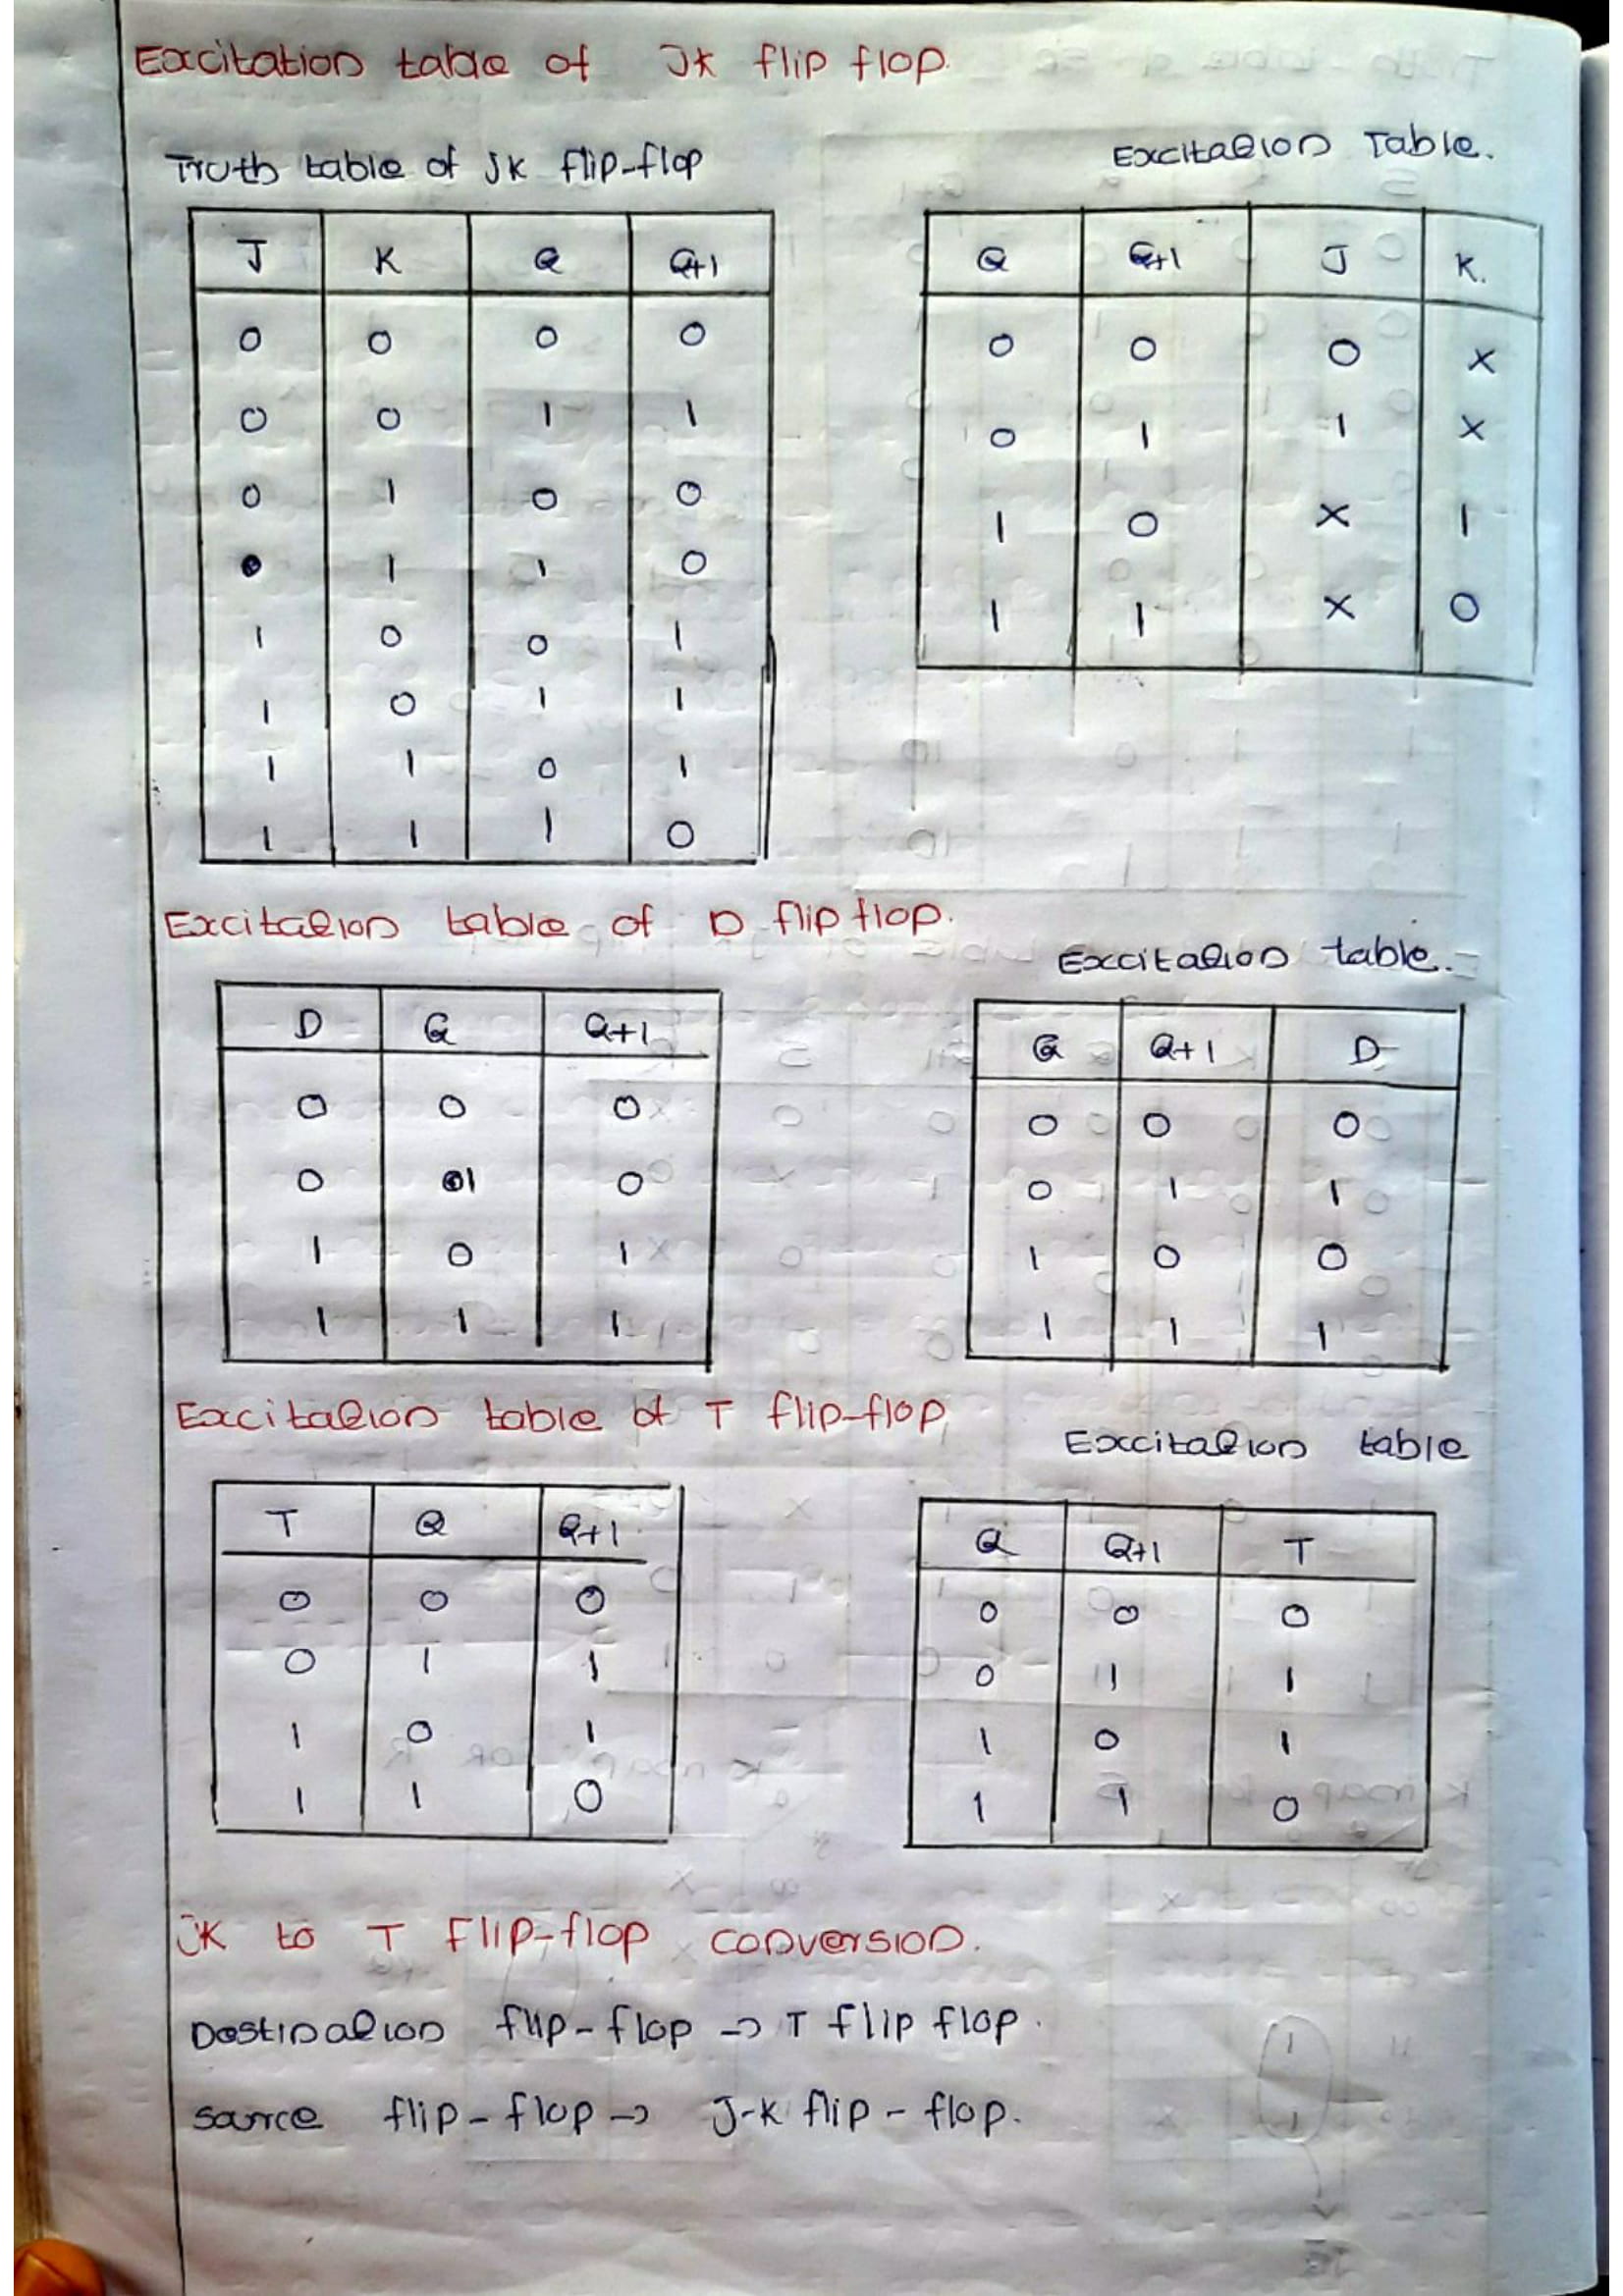 Excitation table of JK flip flop.
Truth table of JK flip-flop
J K Q Q+1
0 0 0 0
0 0 1 1
0 1 0 0
0 1 1 0
1 0 0 1
1 0 1 1
1 1 0 1
1 1 1 0
Excitation Table.
Q Q+1 J K.
0 0 0 X
0 1 1 X
1 0 X 1
1 1 X 0
Excitation table of D flip flop.
D Q Q+1
0 0 0
0 1 0
1 0 1
1 1 1
Excitation table.
Q Q+1 D
0 0 0
0 1 1
1 0 0
1 1 1
Excitation table of T flip-flop
T Q Q+1
0 0 0
0 1 1
1 0 1
1 1 0
Excitation table
Q Q+1 T
0 0 0
0 1 1
1 0 1
1 1 0
JK to T Flip-flop conversion.
Destination flip-flop → T flip flop.
source flip-flop → J-K flip-flop.